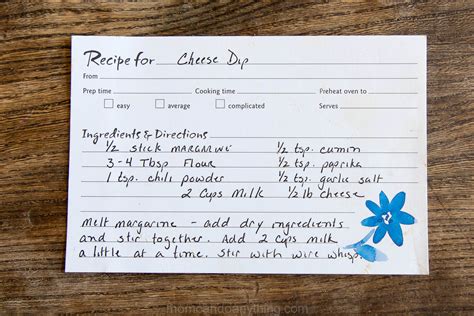 Recipe for Cheese Dip
From
Prep time Cooking time Preheat oven to
easy average complicated Serves
Ingredients & Directions
1/2 stick MARGARINE 1/2 tsp. cumin
3-4 Tbsp Flour 1/2 tsp. paprika
1 tsp. chili powder 1/2 tsp. garlic salt
2 Cups Milk 1/2 lb cheese
melt margarine - add dry ingredients
and stir together. Add 2 cups milk
a little at a time. Stir with wire whisp.
momcandoanything.com